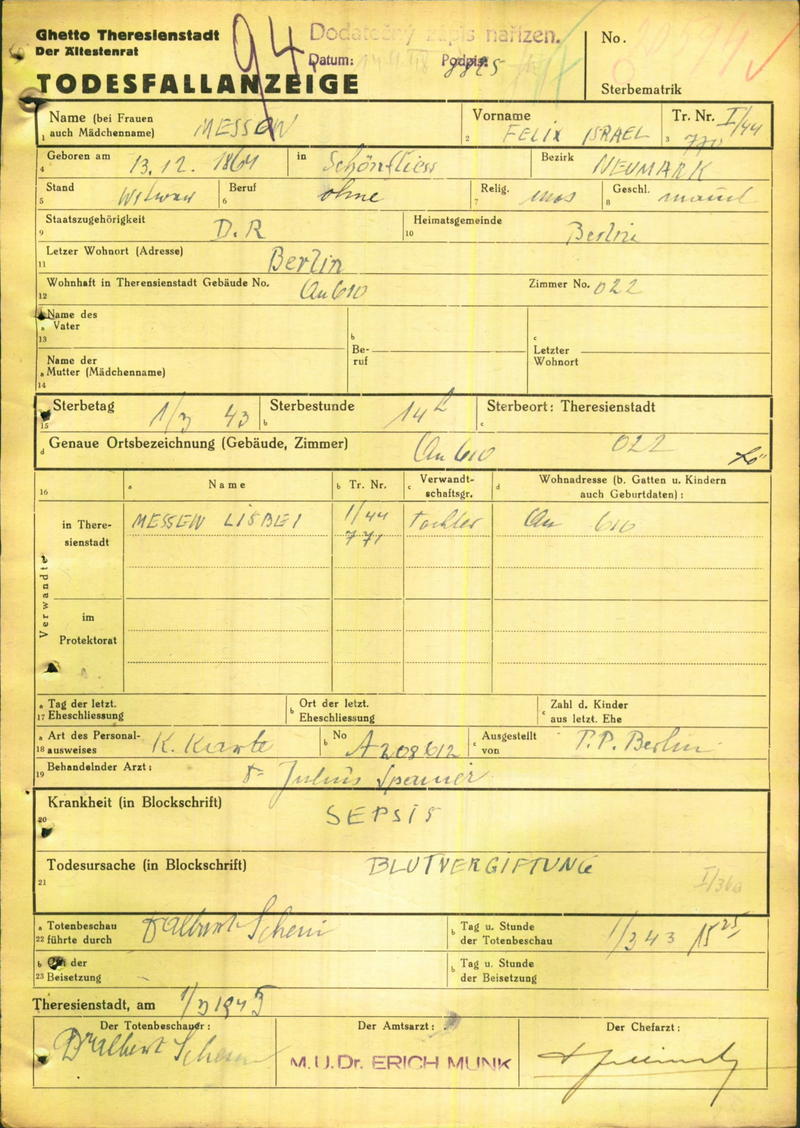 Ghetto Theresienstadt
Der Ältestenrat
TODESFALLANZEIGE
94
Dodatečný zápis nařízen.
Datum: Podpis:
8825
No.
Sterbematrik
Name (bei Frauen auch Mädchenname) MESSOW
1
Vorname FELIX ISRAEL
2
Tr. Nr. I/44
3 770
Geboren am 13.12. 1864 in Schönfliess Bezirk NEUMARK
4
Stand Witwer Beruf ohne Relig. mos Geschl. männl
5 6 7 8
Staatszugehörigkeit D.R Heimatsgemeinde Berlin
9 10
Letzer Wohnort (Adresse) Berlin
11
Wohnhaft in Theresienstadt Gebäude No. Zimmer No. 022
12
a Name des Vater
13
a Name der Mutter (Mädchenname)
14
b Beruf
c Letzter Wohnort
a Sterbetag 1/3 43 b Sterbestunde 14 h c Sterbeort: Theresienstadt
15
d Genaue Ortsbezeichnung (Gebäude, Zimmer) 022
16 a Name b Tr. Nr. c Verwandtschaftsgr. d Wohnadresse (b. Gatten u. Kindern auch Geburtdaten):
Verwandte
in Theresienstadt MESSOW LISBET I/44 Tochter 610
771
im Protektorat
a Tag der letzt.
17 Eheschliessung
b Ort der letzt. Eheschliessung
c Zahl d. Kinder aus letzt. Ehe
a Art des Personal-
18 ausweises K. Karte b No A208612 c Ausgestellt von P.P. Berlin
Behandelnder Arzt: Dr Julius Spanier
19
Krankheit (in Blockschrift) SEPSIS
20
Todesursache (in Blockschrift) BLUTVERGIFTUNG
21
a Totenbeschau
22 führte durch Dr Albert Schein b Tag u. Stunde der Totenbeschau 1/3 43 15 25
b der
23 Beisetzung
b Tag u. Stunde der Beisetzung
Theresienstadt, am 1/3 1943
Der Totenbeschauer: Der Amtsarzt: Der Chefarzt:
Dr Albert Schein M.U.Dr. ERICH MUNK